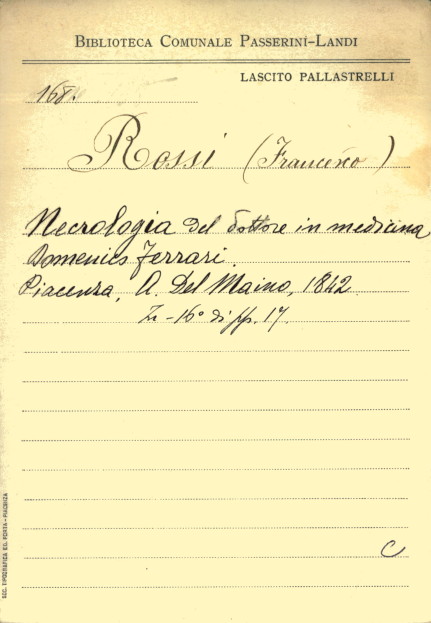 BIBLIOTECA COMUNALE PASSERINI-LANDI
LASCITO PALLASTRELLI
168.
Rossi (Francesco)
Necrologia del dottore in medicina
Domenico Ferrari.
Piacenza, A. Del Maino, 1842
In-16° di pp. 17.
C
SOC. TIPOGRAFICA ED. PORTA - PIACENZA